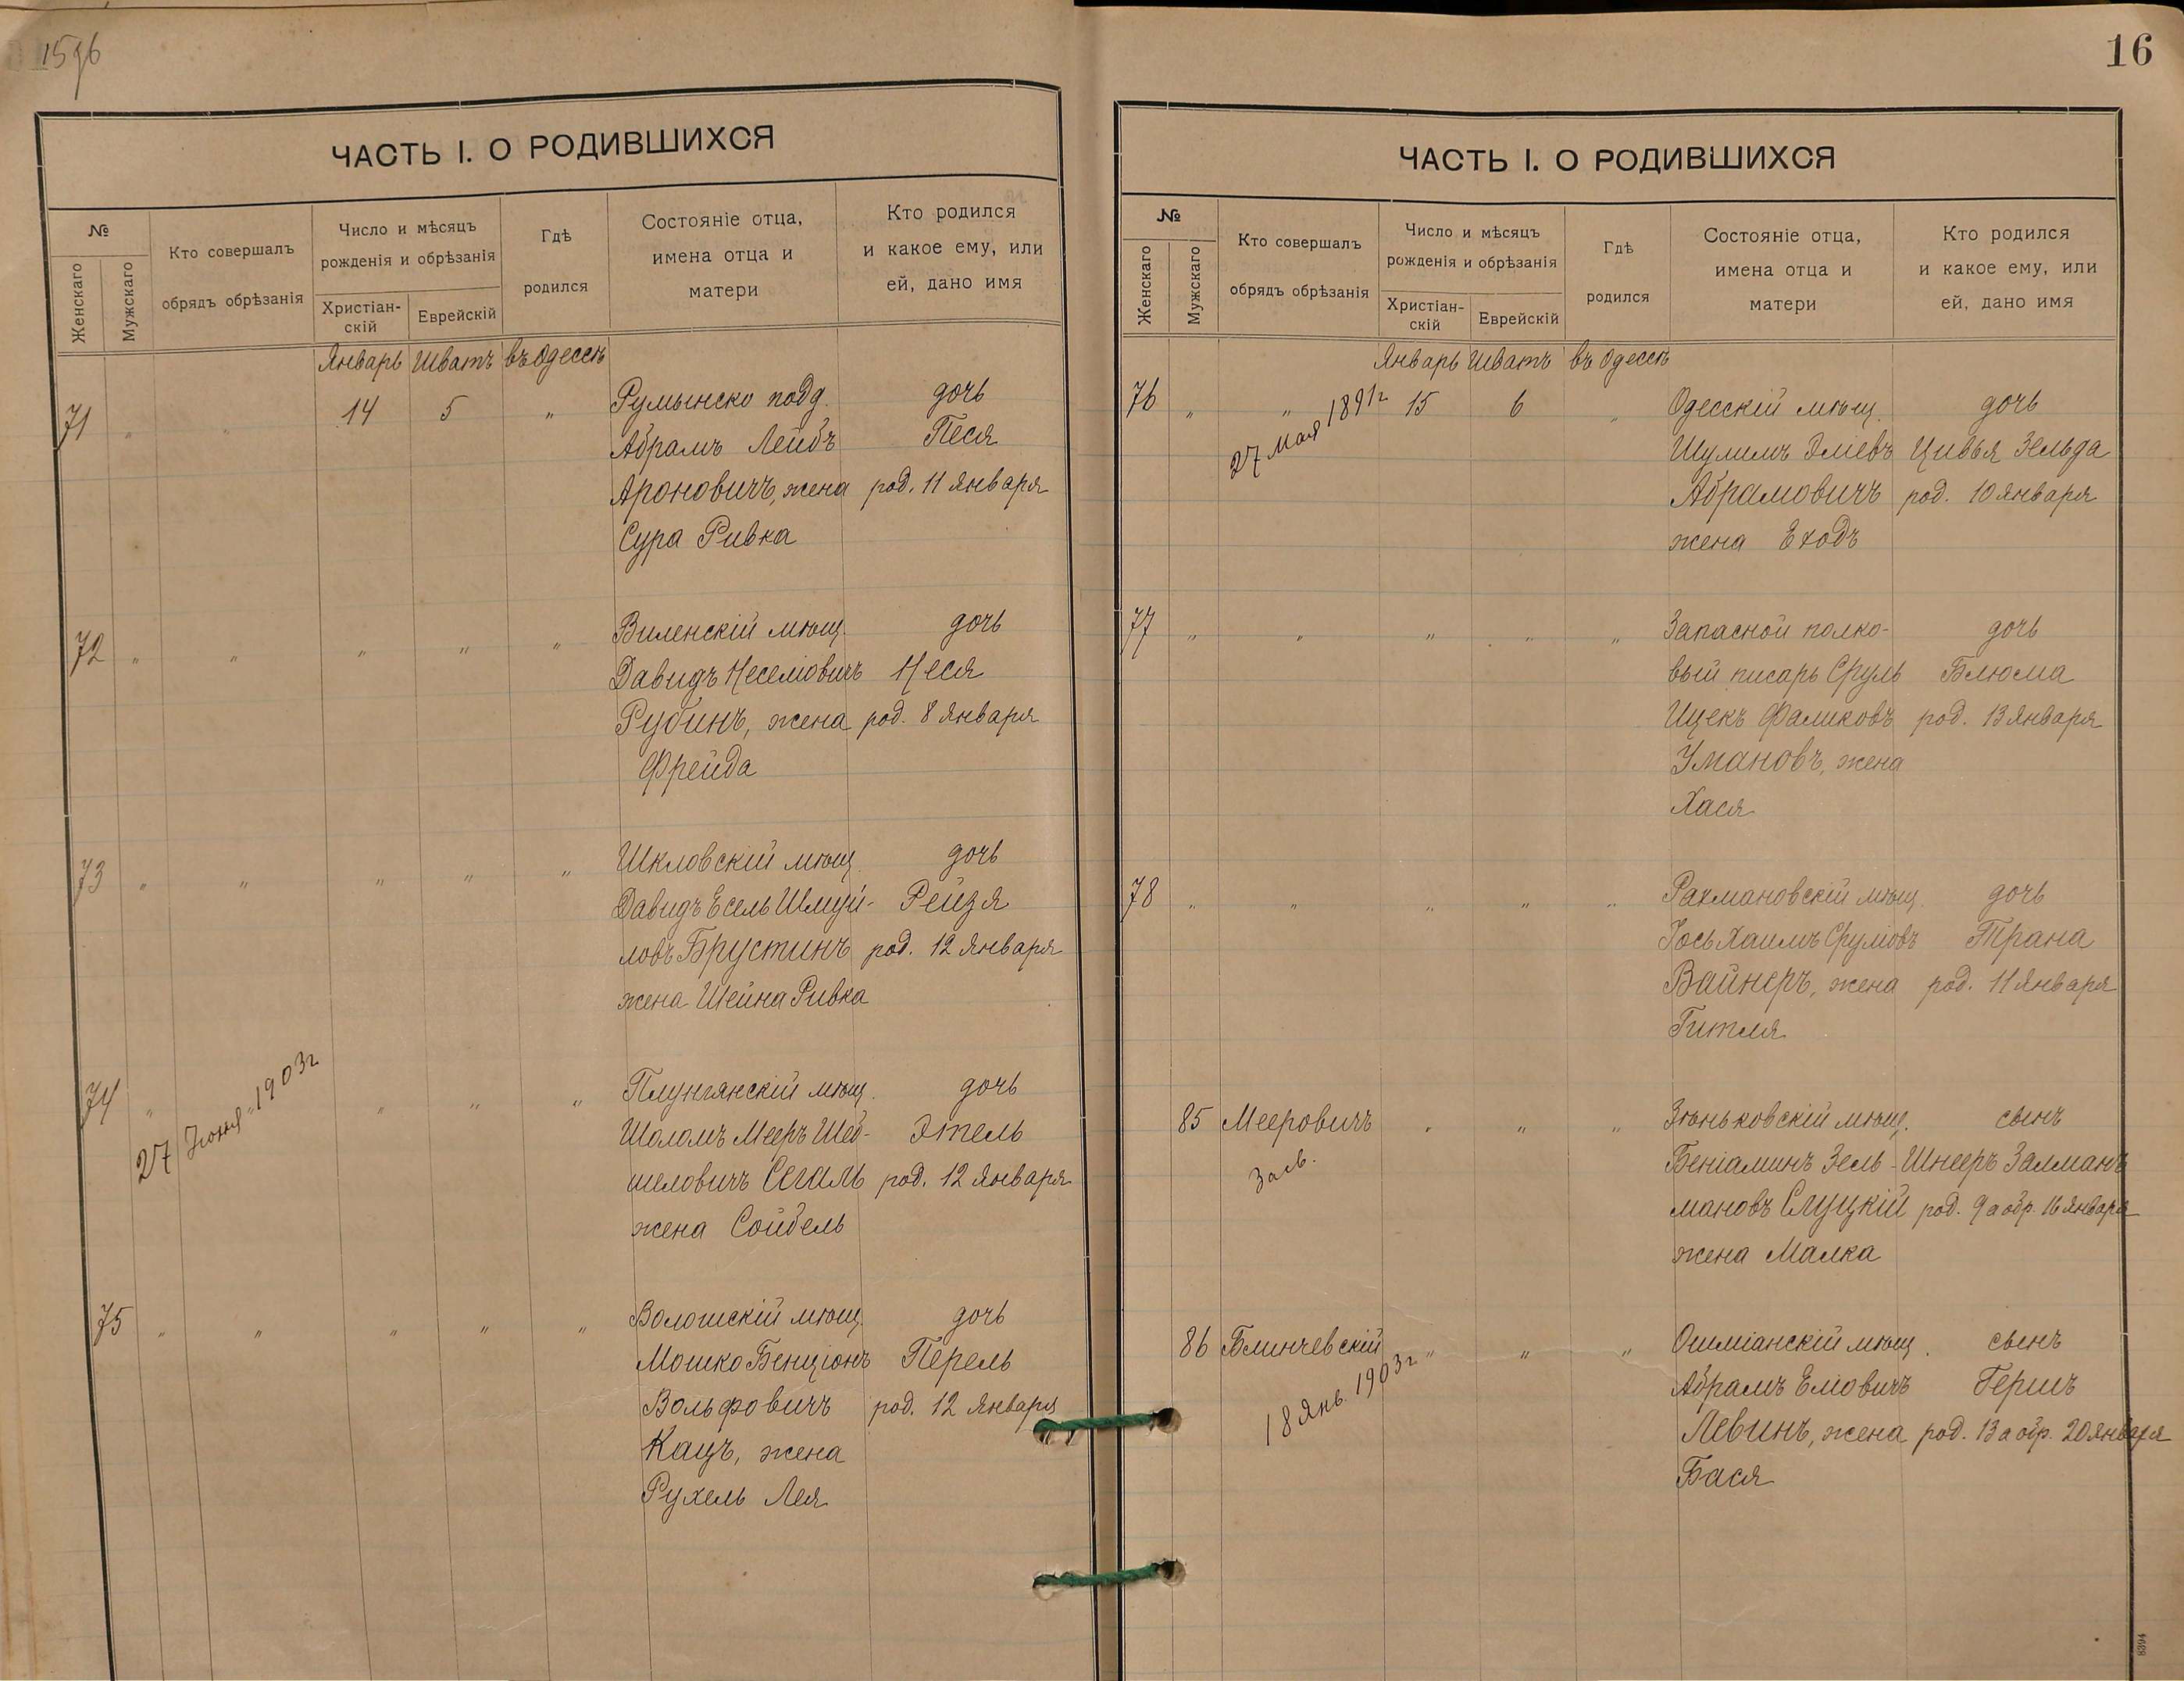 1596
ЧАСТЬ I. О РОДИВШИХСЯ
№
Женскаго
Мужскаго
Кто совершалъ
обрядъ обрѣзанія
Число и мѣсяцъ
рожденія и обрѣзанія
Христіан-
скій
Еврейскій
Гдѣ
родился
Состояніе отца,
имена отца и
матери
Кто родился
и какое ему, или
ей, дано имя
Январь Шватъ въ Одессѣ
71 " " 14 5 " Румынско подд. дочь
Абрамъ Лейбъ Песя
Ароновичъ, жена род. 11 января
Сура Ривка
72 " " " " " Виленскій мѣщ. дочь
Давидъ Неселіовичъ Неся
Рубинъ, жена род. 8 января
Фрейда
73 " " " " " Шкловскій мѣщ. дочь
Давидъ Есель Шмуй- Рейзя
ловъ Брустинъ род. 12 января
жена Шейна Ривка
74 " 27 Іюня 1903г " " " Плунгянскій мѣщ. дочь
Шоломъ Мееръ Шеб- Этель
шеловичъ Сегаль род. 12 января
жена Сойбель
75 " " " " " Волошскій мѣщ. дочь
Мошко Бенціонъ Перель
Вольфовичъ род. 12 января
Кацъ, жена
Рухель Лея
16
ЧАСТЬ I. О РОДИВШИХСЯ
№
Женскаго
Мужскаго
Кто совершалъ
обрядъ обрѣзанія
Число и мѣсяцъ
рожденія и обрѣзанія
Христіан-
скій
Еврейскій
Гдѣ
родился
Состояніе отца,
имена отца и
матери
Кто родился
и какое ему, или
ей, дано имя
Январь Шватъ въ Одессѣ
76 " " 15 6 " Одесскій мѣщ. дочь
27 мая 1891г
Шулимъ Эліевъ Цивья Зельда
Абрамовичъ род. 10 января
жена Еходъ
77 " " " " " Запасной полко- дочь
вый писарь Сруль Блюма
Ицекъ Фаликовъ род. 13 января
Умановъ, жена
Хася
78 " " " " " Рахмановскій мѣщ. дочь
Іось Хаимъ Сруловъ Трана
Вайнеръ, жена род. 11 января
Гитля
85 Мееровичъ " " " Зѣньковскій мѣщ. сынъ
Залв.
Беніаминъ Зель- Шнееръ Залманъ
мановъ Слуцкій род. 9 а обр. 16 января
жена Малка
86 Блинчевскій " " " Ошміанскій мѣщ. сынъ
18 Янв. 1903г
Абрамъ Еліовичъ Гершъ
Левинъ, жена род. 13 а обр. 20 января
Бася
8394